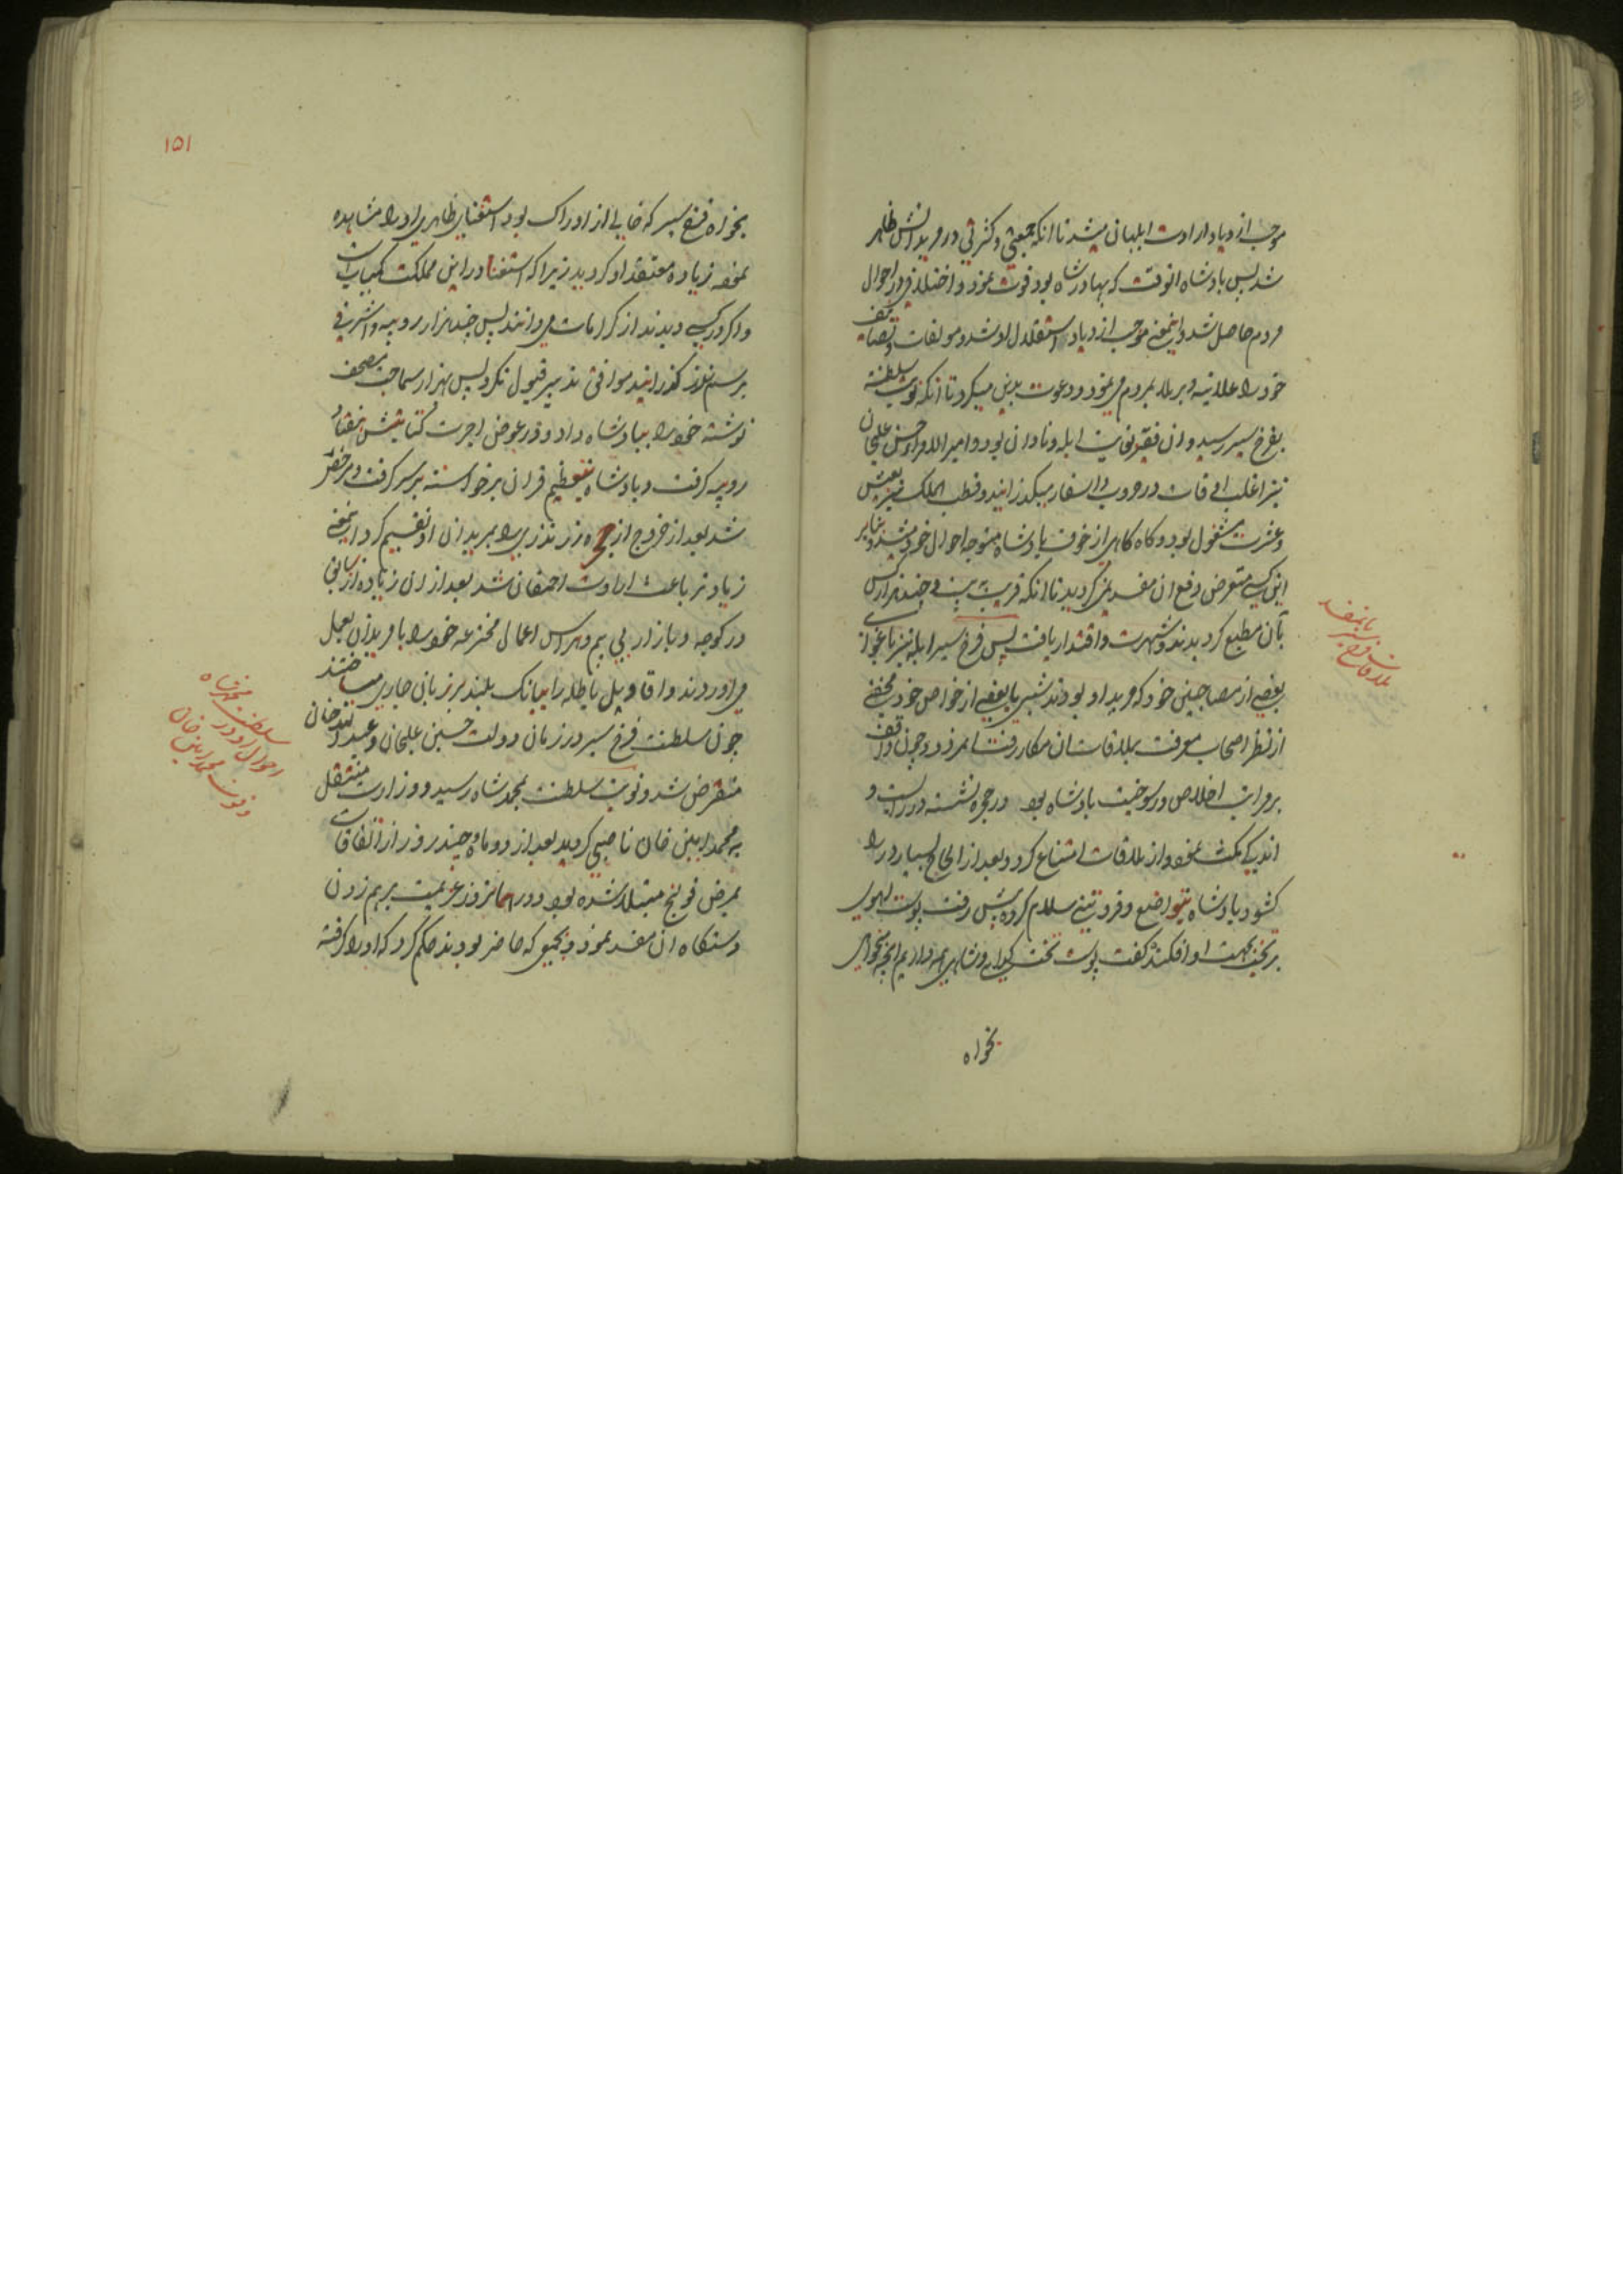 موجب ازدیاد ارادت ابلهان میشد تا انکه جمعیتی و کثرتی در مریدانش ظاهر
شد پس بادشاه انوقت که بهادر شاه بود فوت نمود و اختلاف در احوال
مردم حاصل شد و اینمعنی موجب ازدیاد استقلال او شد و مولفات و تصانیف
خود را علانیه و برملا بمردم می نمود و دعوت بدین میکرد تا انکه نوبت سلطنت
بفرخ سیر رسید و ان فقیر بغایت ابله و نادان بود و امیر الامرا حسن علیخان
نیز اغلب اوقات در حروب و اسفار میکذرانید و قطب الملک نیز بعیش
و عشرت مشغول بود و کاه کاهی از خوف بادشاه متوجه احوال خود میشد و بنابر
این کسی متعرض دفع ان مفسد نمی کردید تا انکه قریب بیست و چند هزار کس
بآن مطیع کردیدند و شهرت و اقتدار یافت پس فرخ سیر ابله نیز باغوای
بعضی از مصاحبین خود که مرید او بودند شبی با بعضی از خواص خود مخفی
از نظر اصحاب معرفت بملاقات ان مکار رفت انمرد چون واقف
بر مراتب اخلاص و رسوخیت بادشاه بود در حجره نشسته در را بست و
اندکی مکث نموده از ملاقات امتناع کرد و بعد از الحاح بسیار در را
کشود بادشاه بتواضع و فروتنی سلام کرده پیش رفت پوست اهوی
بر تخت بجهت او افکند کفت پوست تخت کدایی و شاهی همه داریم انچه میخواهی
بخواه
ملاقات فرخ سیر بانمفسد
۱۵۱
بخواه فرخ سیر که خالی از ادراک بود استغنای ظاهری او را مشاهده
نموده زیاده معتقد او کردید زیرا که استغنا در این مملکت کمیاب است
و اکر در کسی دیدند از کرامات می دانند پس چند هزار روپیه و اشرفی
برسم نذر کذرانید موافق تدبیر قبول نکرد پس بهزار سماجت مصحف
نوشته خود را ببادشاه داد و در عوض اجرت کتابتش هفتاد
روپیه کرفت و بادشاه بتعظیم قران برخواسته بر سر کرفت و مرخص
شد بعد از خروج از حجره زر نذری را بمریدان او تقسیم کرد اینمعنی
زیاد تر باعث ارادت احمقان شد بعد از ان زیاده از سابق
در کوچه و بازار بی بیم و هراس اعمال مخترعه خود را با مریدان بعمل
می اوردند و اقاویل باطله را ببانک بلند بر زبان جاری میساختند
چون سلطنت فرخ سیر در زمان دولت حسین علیخان و عبدالله خان
منقرض شد و نوبت سلطنت بمحمد شاه رسید و وزارت منتقل
به محمد امین خان ناصبی کردید بعد از دو ماه و چند روز از اتفاقات
بمرض قولنج مبتلا شده بود و در همانروز عزیمت برهم زدن
دستکاه ان مفسد نمود و بجمعی که حاضر بودند حکم کرد که او را کرفته
سلطنت محمد شاه
احوال او در
وزارت محمد امین خان